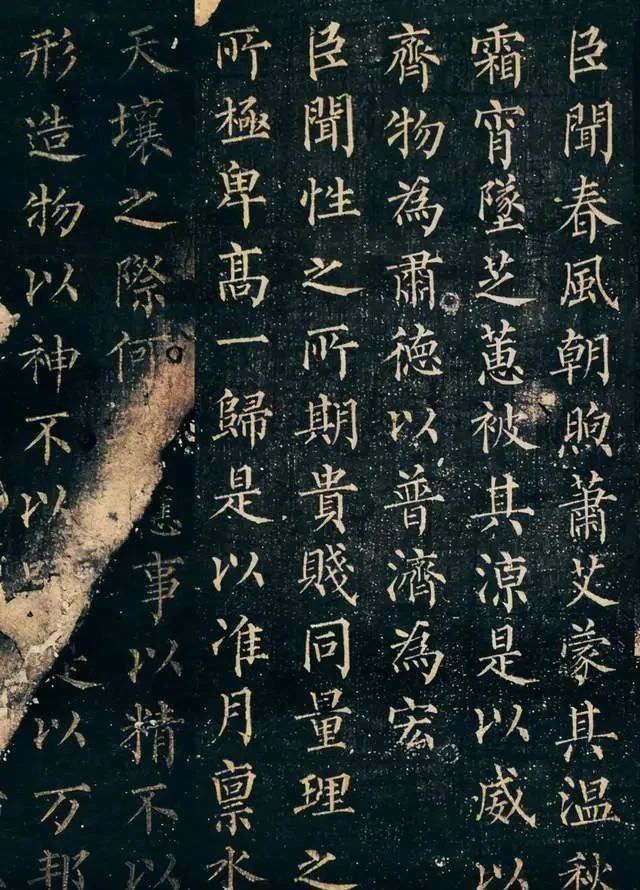 臣聞春風朝煦蕭艾蒙其温秋
霜宵墜芝蕙被其涼是以威以
齊物為肅德以普濟為宏
臣聞性之所期貴賤同量理之
所極卑高一歸是以准月禀水
天壤之際何應事以精不以
形造物以神不以以万邦